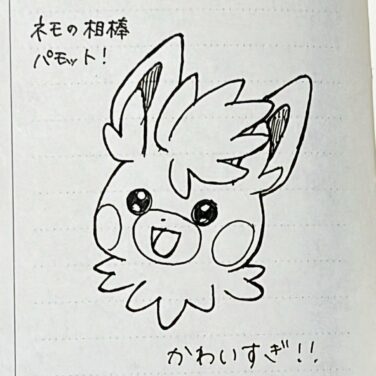 ネモの相棒
パモット!
かわいすぎ!!